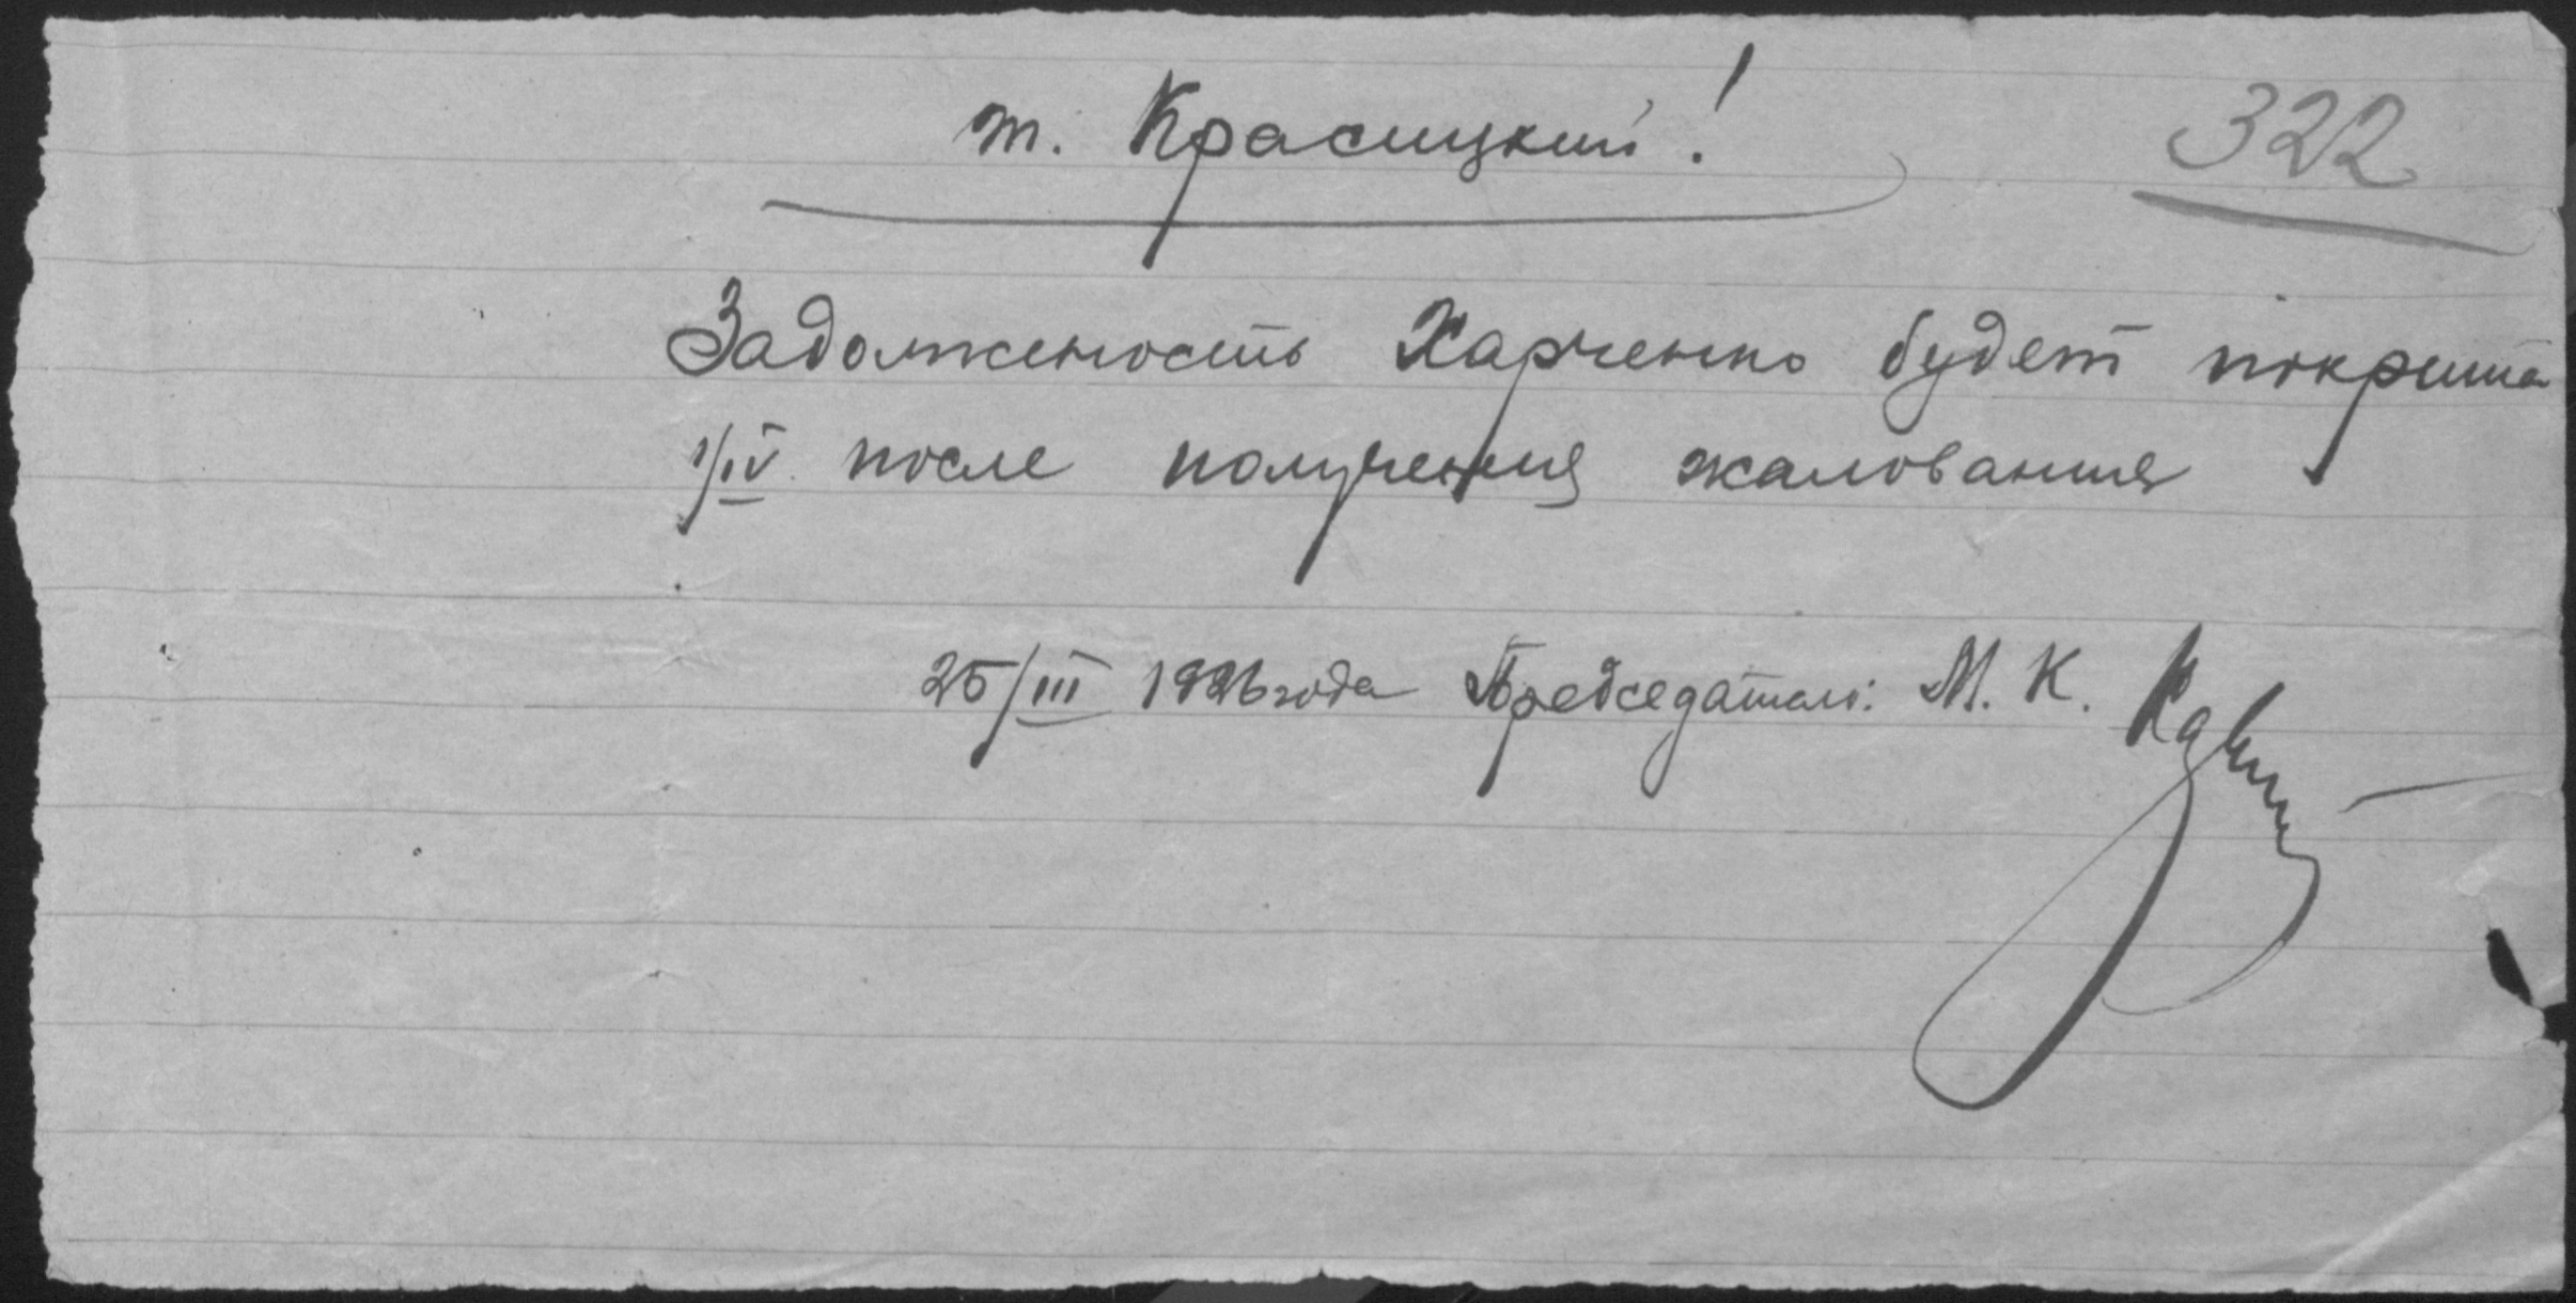 322
т. Красицкий!
Задолженость Харченко будет покрыта
1/IV. после получения жалования
25/III 1926 года Председатель: М. К.